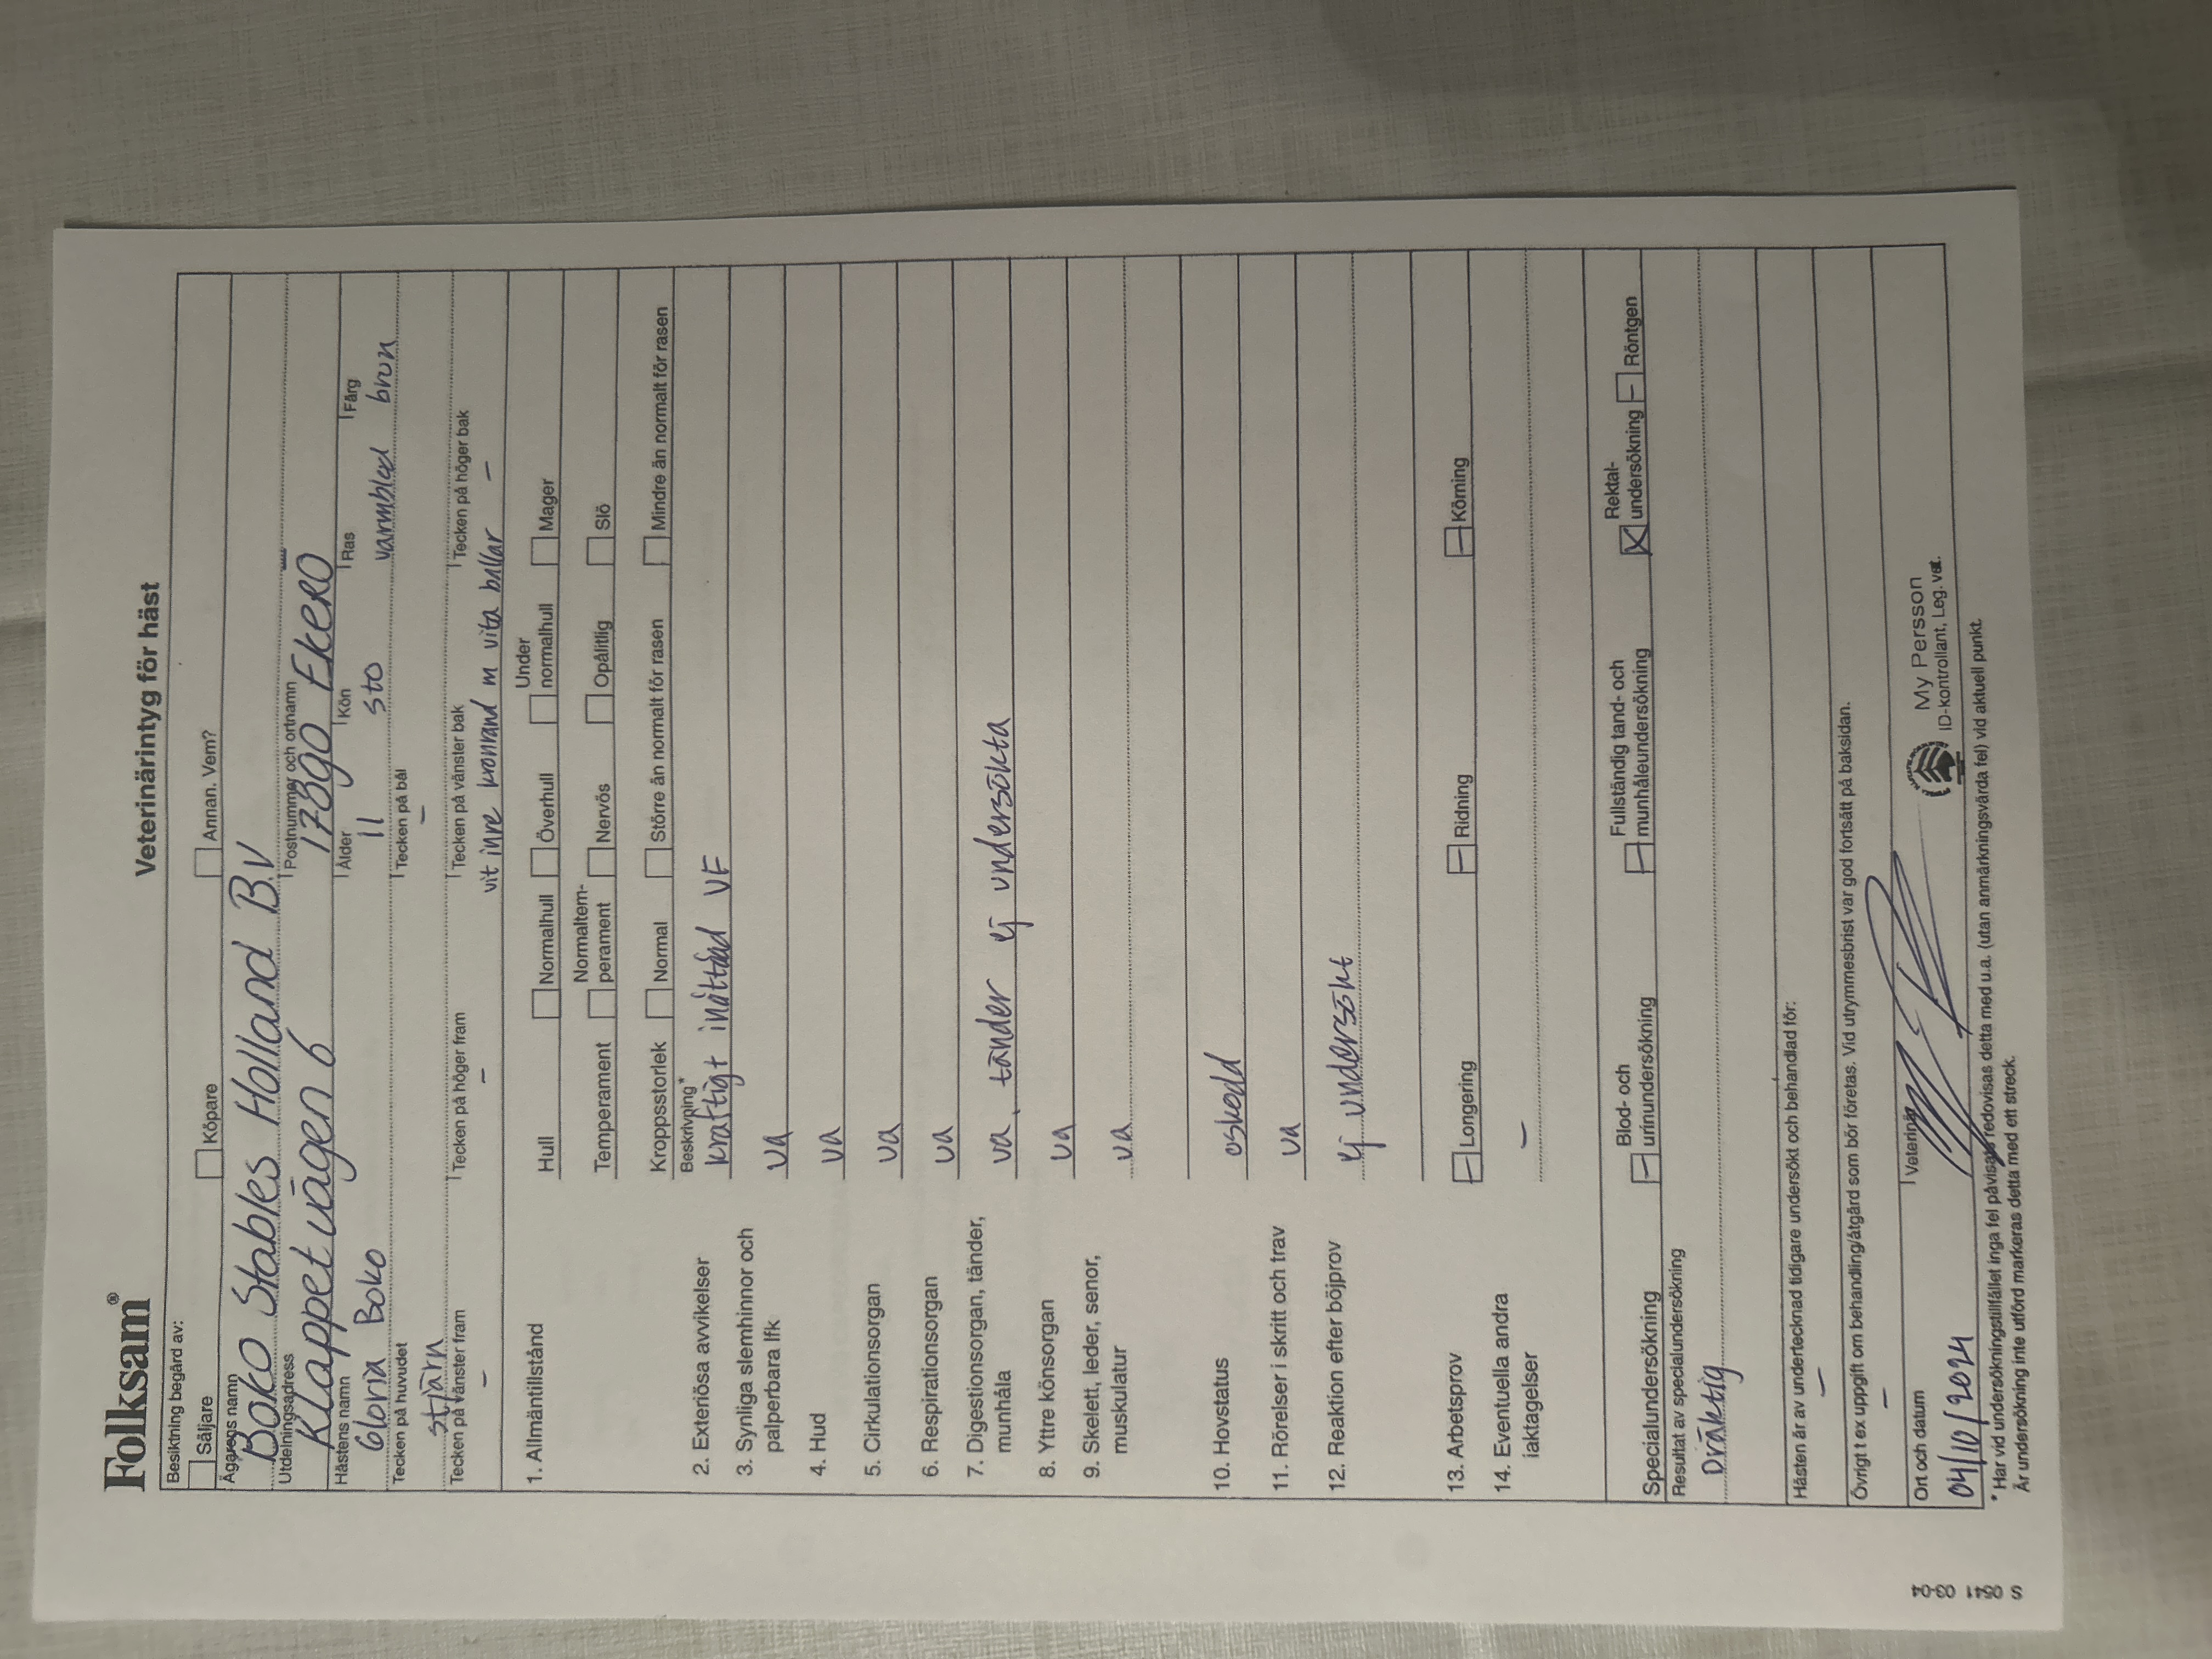 Folksam®
Veterinärintyg för häst
Besiktning begärd av:
Säljare Köpare Annan. Vem?
Ägarens namn
Boko Stables Holland B.V
Utdelningsadress Postnummer och ortnamn
Klappetvägen 6 17890 Ekerö
Hästens namn Ålder Kön Ras Färg
Gloria Boko 11 sto varmblod brun
Tecken på huvudet Tecken på bål
stjärn –
Tecken på vänster fram Tecken på höger fram Tecken på vänster bak Tecken på höger bak
– – vit inre kronrand m vita ballar –
1. Allmäntillstånd Hull Normalhull Överhull Under normalhull Mager
Temperament Normaltem-perament Nervös Opålitlig Slö
Kroppsstorlek Normal Större än normalt för rasen Mindre än normalt för rasen
Beskrivning*
2. Exteriösa avvikelser kraftigt inåttåd VF
3. Synliga slemhinnor och
palperbara lfk ua
4. Hud ua
5. Cirkulationsorgan ua
6. Respirationsorgan ua
7. Digestionsorgan, tänder,
munhåla ua, tänder ej undersökta
8. Yttre könsorgan ua
9. Skelett, leder, senor,
muskulatur ua
10. Hovstatus oskodd
11. Rörelser i skritt och trav ua
12. Reaktion efter böjprov ej undersökt
13. Arbetsprov – Longering – Ridning – Körning
14. Eventuella andra
iaktagelser –
Specialundersökning – Blod- och urinundersökning – Fullständig tand- och munhåleundersökning X Rektal-undersökning – Röntgen
Resultat av specialundersökning
Dräktig
Hästen är av undertecknad tidigare undersökt och behandlad för:
–
Övrigt t ex uppgift om behandling/åtgärd som bör företas. Vid utrymmesbrist var god fortsätt på baksidan.
–
Ort och datum Veterinär
04/10/2024
My Persson
ID-kontrollant, Leg. vet.
* Har vid undersökningstillfället inga fel påvisats redovisas detta med u.a. (utan anmärkningsvärda fel) vid aktuell punkt.
Är undersökning inte utförd markeras detta med ett streck.